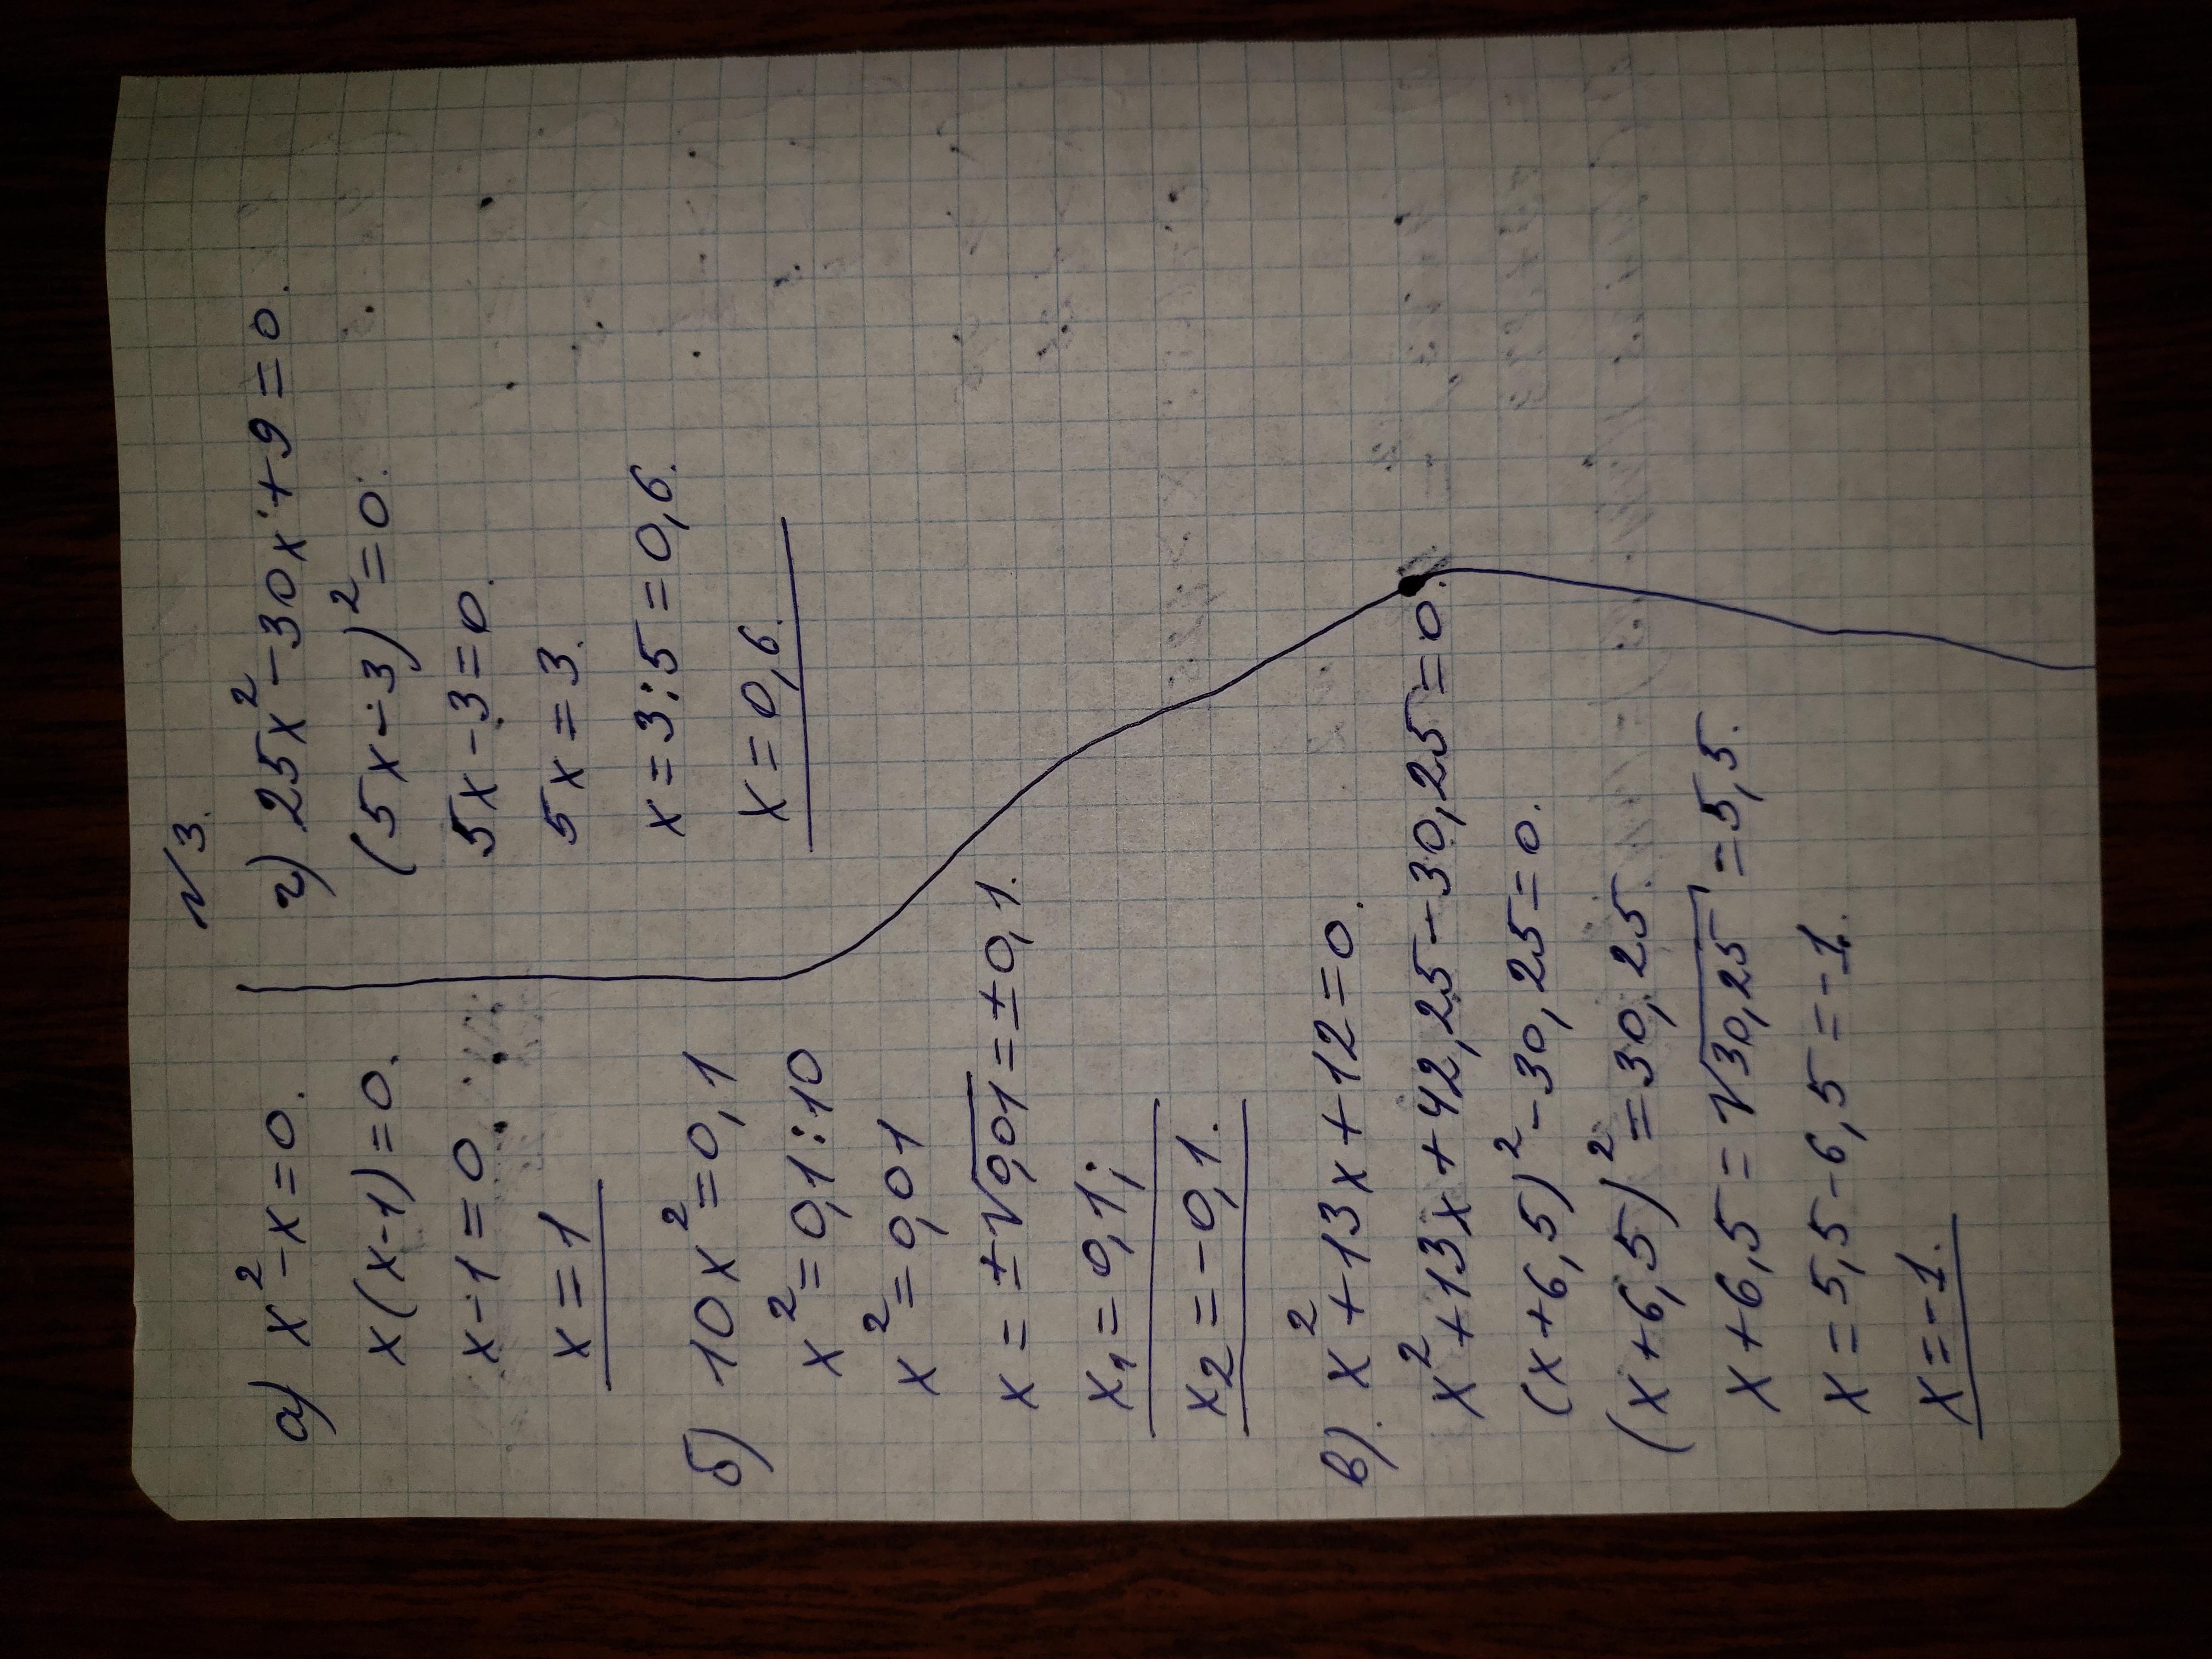 №3.
а) x²-x=0.
x(x-1)=0.
x-1=0.
x=1
б) 10x²=0,1
x²=0,1:10
x²=0,01
x=±√0,01=±0,1.
x₁=0,1;
x₂=-0,1.
в). x²+13x+12=0.
x²+13x+42,25-30,25=0.
(x+6,5)²-30,25=0.
(x+6,5)²=30,25.
x+6,5=√30,25=5,5.
x=5,5-6,5=-1.
x=-1.
г) 25x²-30x+9=0.
(5x-3)²=0.
5x-3=0.
5x=3.
x=3:5=0,6.
x=0,6.